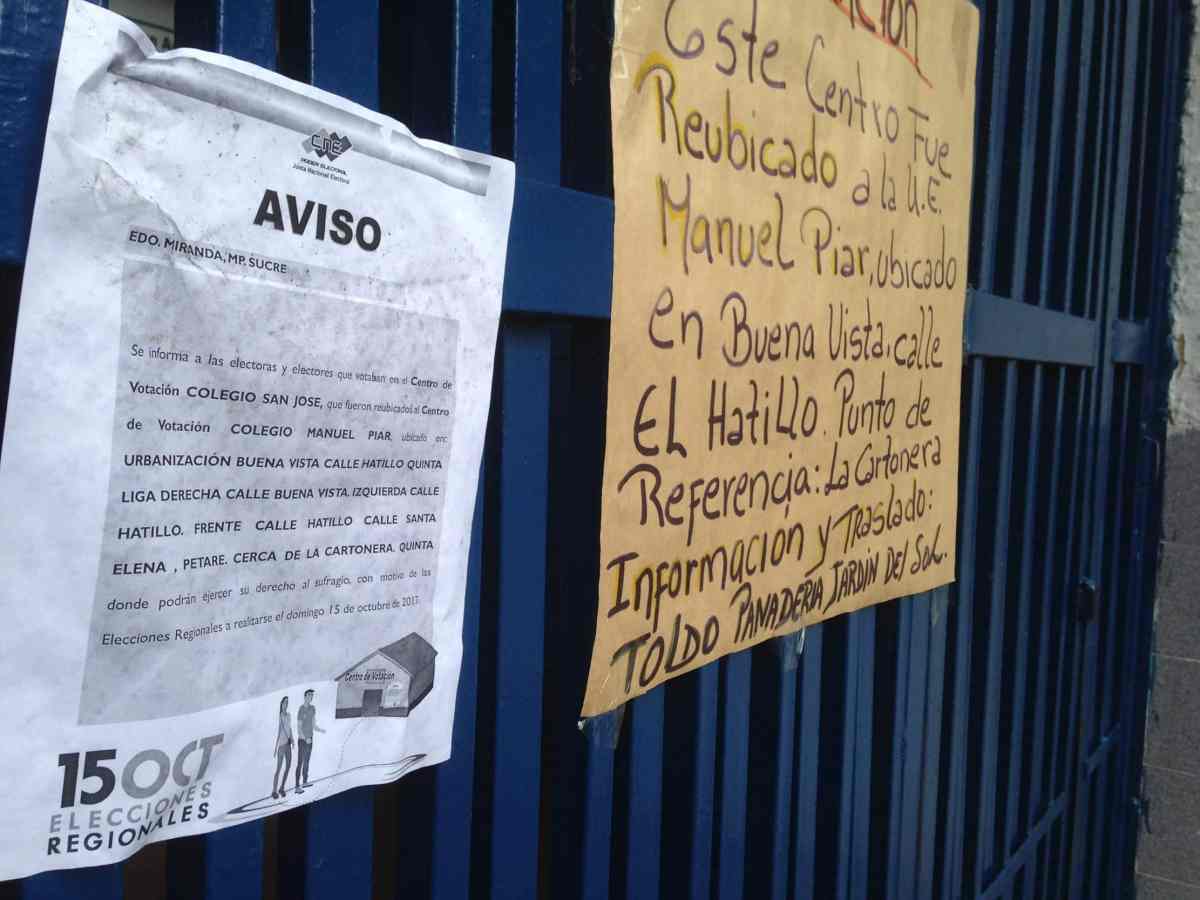 CNE
PODER ELECTORAL
Junta Nacional Electoral
AVISO
EDO. MIRANDA, MP. SUCRE
Se informa a las electoras y electores que votaban en el Centro de
Votación COLEGIO SAN JOSE, que fueron reubicados al Centro
de Votación COLEGIO MANUEL PIAR, ubicado en:
URBANIZACIÓN BUENA VISTA CALLE HATILLO QUINTA
LIGA DERECHA CALLE BUENA VISTA. IZQUIERDA CALLE
HATILLO. FRENTE CALLE HATILLO CALLE SANTA
ELENA , PETARE. CERCA DE LA CARTONERA. QUINTA
donde podrán ejercer su derecho al sufragio, con motivo de las
Elecciones Regionales a realitarse el domingo 15 de octubre de 2017.
Centro de Votación
15 OCT
ELECCIONES
REGIONALES
Este Centro Fue
Reubicado a la U.E.
Manuel Piar, ubicado
en Buena Vista, calle
El Hatillo. Punto de
Referencia: La Cartonera
Informacion y Traslado:
TOLDO PANADERIA JARDIN DEL SOL.